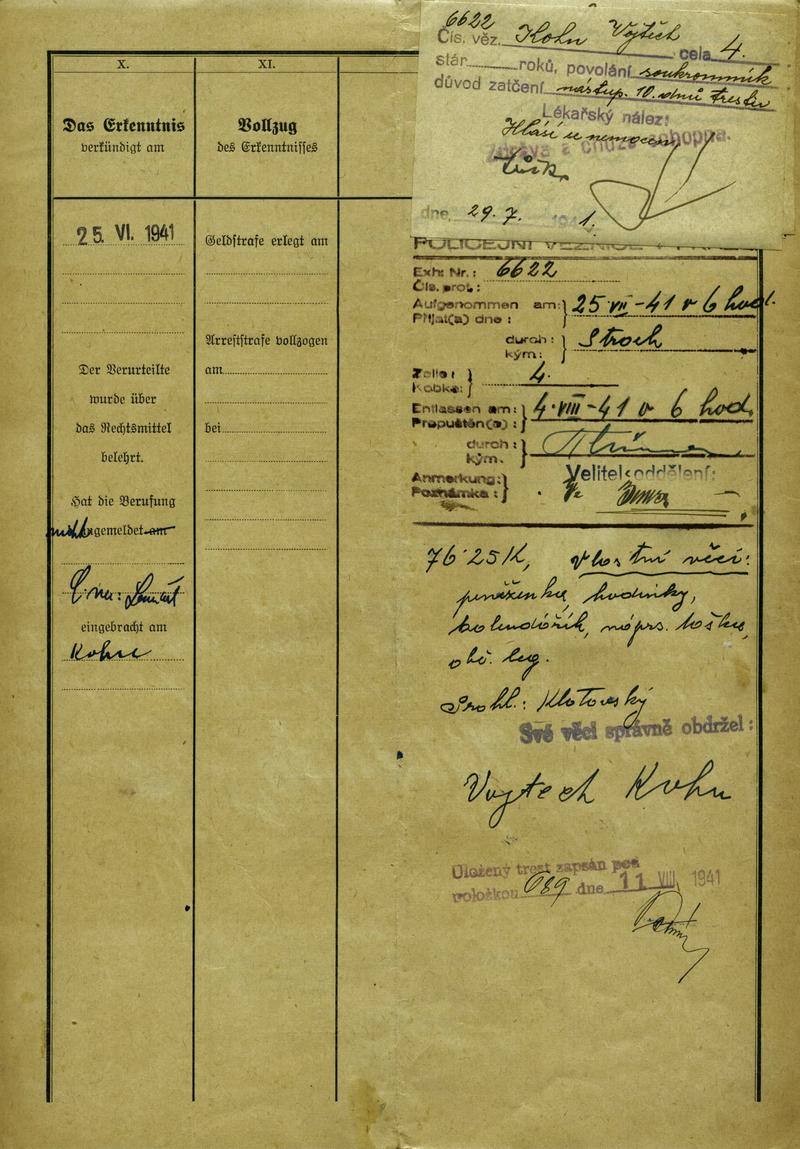 X.
Das Erkenntnis
verkündigt am
25. VI. 1941
Der Verurteilte
wurde über
das Rechtsmittel
belehrt.
Hat die Berufung
angemeldet am
eingebracht am
Kohn
XI.
Vollzug
des Erkenntnisses
Geldstrafe erlegt am
Arreststrafe vollzogen
am
bei
6622
Čís. věz. Kohn Vojtěch cela 4.
stár roků, povolání soukromník
důvod zatčení nástup. 10. dnů trestu
Lékařský nález:
Hlásí se nemocen
dne, 29. 7. 1941.
POLICEJNÍ VĚZNICE
Exh: Nr.: 6622
Čís. prot.:
Aufgenommen am: 25 VII - 41 v 6 hod.
Přijat(a) dne:
durch: Stroch
kým:
Zelle: 4.
Kobka:
Entlassen am: 4. VIII - 41 v 6 hod.
Propuštěn(a):
durch:
kým.
Velitel oddělení:
Anmerkung:
Poznámka:
76·25 K, Vlastní věci:
peněženku, hodinky,
ob. leg.
Prohl.: Klatovský
Své věci správně obdržel:
Vojtech Kohn
Uložený trest zapsán pod
položkou 689 dne 11 VIII. 1941